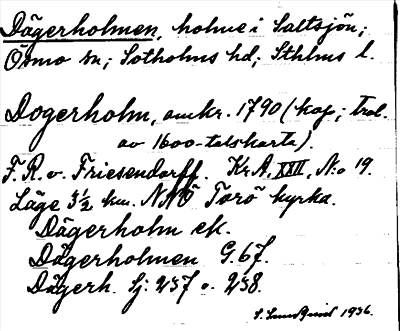 Dägerholmen, holme i Saltsjön;
Ösmo sn; Sotholms hd; Sthlms l.
Dogerholm, omkr. 1790 (kop; trol.
av 1600-talskarta).
F. R. v. Friesendorff. Kr.A. XXII, N:o 19.
Läge 3½ km. NNÖ Torö kyrka.
Dägerholm ek.
Dägerholmen G. 67.
Dägerh. Sj: 237 o. 238.
S. Lundqvist 1936.